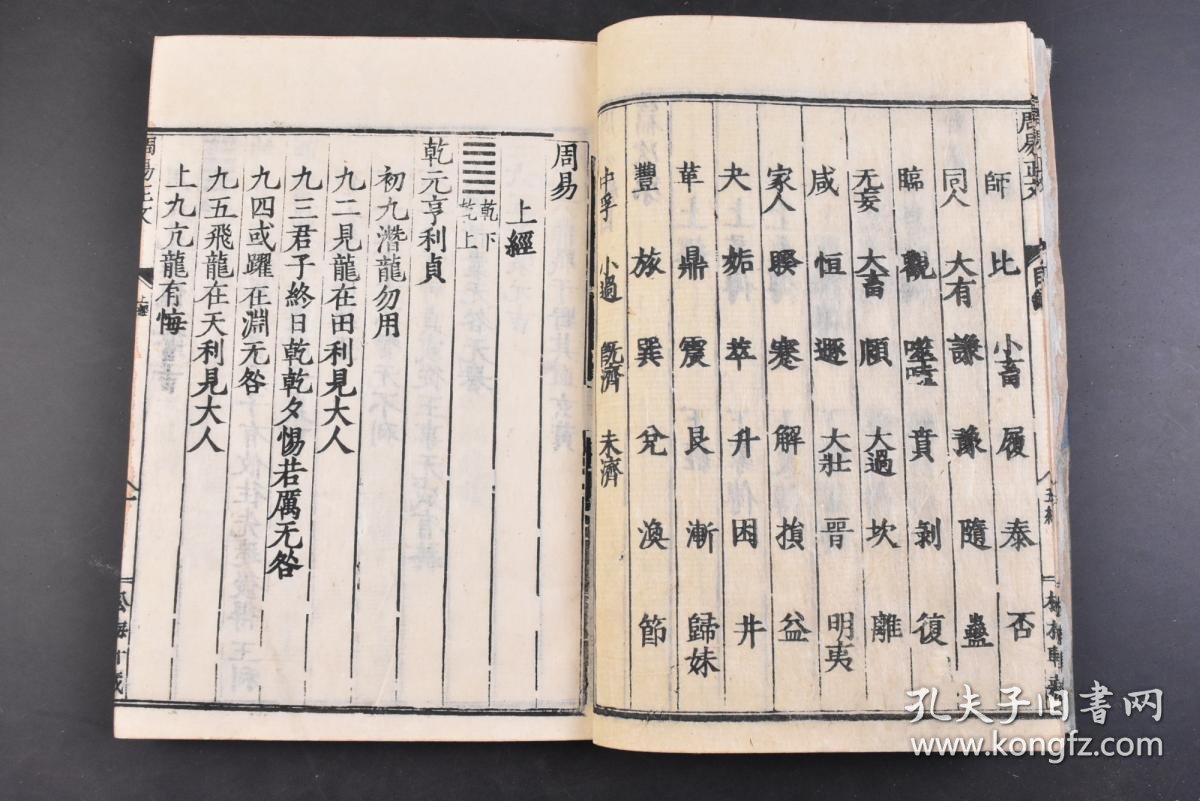 周易正文
目錄
師 比 小畜 履 泰 否
同人 大有 謙 豫 隨 蠱
臨 觀 噬嗑 賁 剝 復
无妄 大畜 頤 大過 坎 離
咸 恒 遯 大壯 晉 明夷
家人 睽 蹇 解 損 益
夬 姤 萃 升 困 井
革 鼎 震 艮 漸 歸妹
豐 旅 巽 兌 渙 節
中孚 小過 旣濟 未濟
周易
上經
乾下
乾上
乾元亨利貞
初九潛龍勿用
九二見龍在田利見大人
九三君子終日乾乾夕惕若厲无咎
九四或躍在淵无咎
九五飛龍在天利見大人
上九亢龍有悔
周易正文
上經
孔夫子旧书网
www.kongfz.com